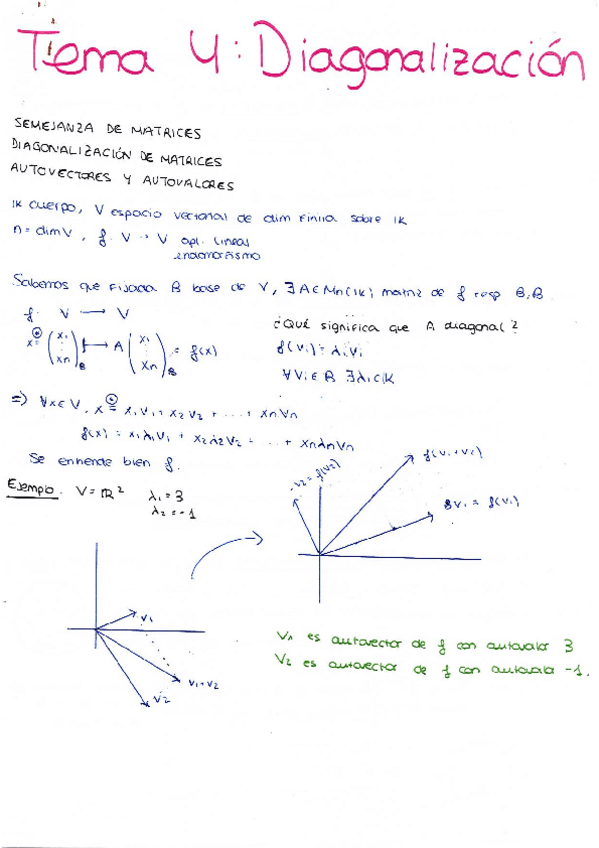 Tema 4: Diagonalización
SEMEJANZA DE MATRICES
DIAGONALIZACIÓN DE MATRICES
AUTOVECTORES Y AUTOVALORES
IK cuerpo, V espacio vectorial de dim finita sobre IK
n = dim V, f: V → V apl. lineal
endomorfismo
Sabemos que fijada B base de V, ∃ A ∈ Mn(IK) matriz de f resp B,B
f: V → V
x ⊛= (x₁ ⋮ xn)_B ↦ A (x₁ ⋮ xn)_B = f(x)
¿Qué significa que A diagonal?
f(vi) = λi vi
∀vi ∈ B ∃λi ∈ IK
=) ∀x ∈ V, x ⊛= x₁v₁ + x₂v₂ + .... + xnvn
f(x) = x₁λ₁v₁ + x₂λ₂v₂ + ... + xnλnvn
Se entiende bien f.
Ejemplo. V = IR² λ₁ = 3
λ₂ = -1
-v₂ = f(v₂)
f(v₁+v₂)
3v₁ = f(v₁)
v₁
v₁+v₂
v₂
V₁ es autovector de f con autovalor 3
V₂ es autovector de f con autovalor -1.